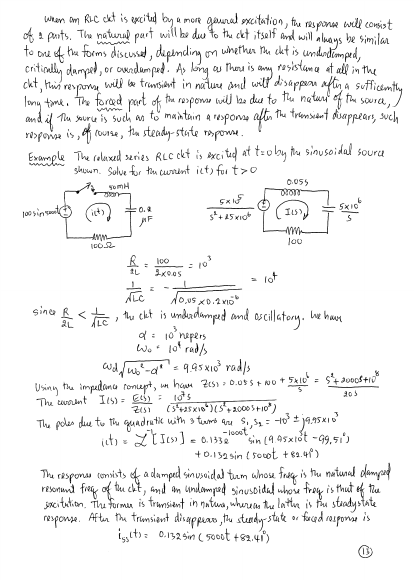 When an RLC ckt is excited by a more general excitation, the response will consist
of 2 parts. The natural part will be due to the ckt itself and will always be similar
to one of the forms discussed, depending on whether the ckt is underdamped,
critically damped, or overdamped. As long as there is any resistance at all in the
ckt, this response will be transient in nature and will disappear after a sufficiently
long time. The forced part of the response will be due to the nature of the source,
and if the source is such as to maintain a response after the transient disappears, such
response is, of course, the steady-state response.
Example The relaxed series RLC ckt is excited at t=0 by the sinusoidal source
shown. Solve for the current i(t) for t > 0
50mH
100 sin 5000t
i(t)
0.2
μF
100Ω
0.05s
5×10⁵
s²+25×10⁶
I(s)
5×10⁶
s
100
R/2L = 100/(2×0.05) = 10³
1/√LC = 1/√(0.05×0.2×10⁻⁶) = 10⁴
since R/2L < 1/√LC, the ckt is underdamped and oscillatory. We have
α = 10³ nepers
ω₀ = 10⁴ rad/s
ωd √(ω₀²-α²) = 9.95×10³ rad/s
Using the impedance concept, we have Z(s) = 0.05s + 100 + 5×10⁶/s = (s²+2000s+10⁸)/20s
The current I(s) = E(s)/Z(s) = 10⁷s/((s²+25×10⁶)(s²+2000s+10⁸))
The poles due to the quadratic with 3 terms are s₁,s₂ = -10³ ± j9.95×10³
i(t) = L⁻¹[I(s)] = 0.133e^-1000t sin(9.95×10³t - 99.51°)
+0.132 sin(5000t + 82.41°)
The response consists of a damped sinusoidal term whose freq is the natural damped
resonant freq of the ckt, and an undamped sinusoidal whose freq is that of the
excitation. The former is transient in nature, whereas the latter is the steady state
response. After the transient disappears, the steady-state or forced response is
iss(t) = 0.132 sin(5000t + 82.41°)
13